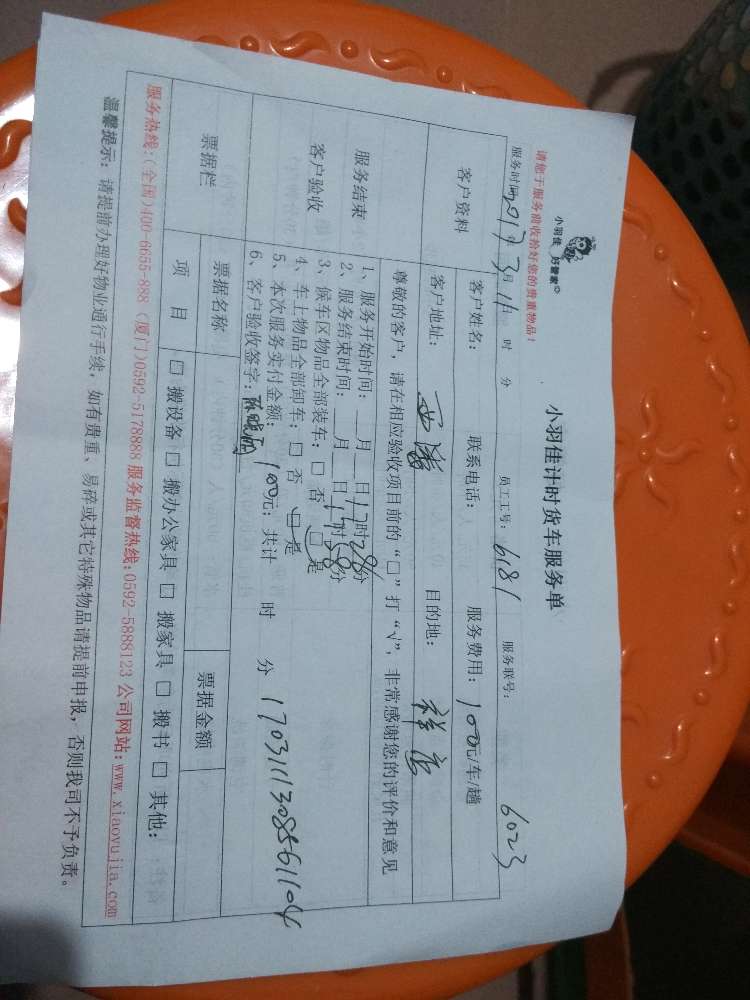 小羽佳 好管家
小羽佳计时货车服务单
请您于服务前收拾好您的贵重物品！
服务时间 2017年3月11日 时 分 员工工号：6181 服务联号： 6023
客户资料 客户姓名： 联系电话： 服务费用：100元/车/趟
客户地址： 目的地：
尊敬的客户，请在相应验收项目前的“□”打“√”，非常感谢您的评价和意见
服务结束
客户验收
1、服务开始时间：__月__日17时28分
2、服务结束时间：__月__日17时58分
3、候车区物品全部装车：□ 否 □ 是
4、车上物品全部卸车：□ 否 □ 是
5、本次服务实付金额：100元；共计 时 分 1703111308561104
6、客户验收签字：
票据栏 票据名称 票据金额
项 目 □ 搬设备 □ 搬办公家具 □ 搬家具 □ 搬书 □ 其他：
服务热线：(全国)400-6655-888 (厦门)0592-5178888 服务监督热线：0592-5888123 公司网站：www.xiaoyujia.com
温馨提示：请提前办理好物业通行手续，如有贵重、易碎或其它特殊物品请提前申报，否则我司不予负责。